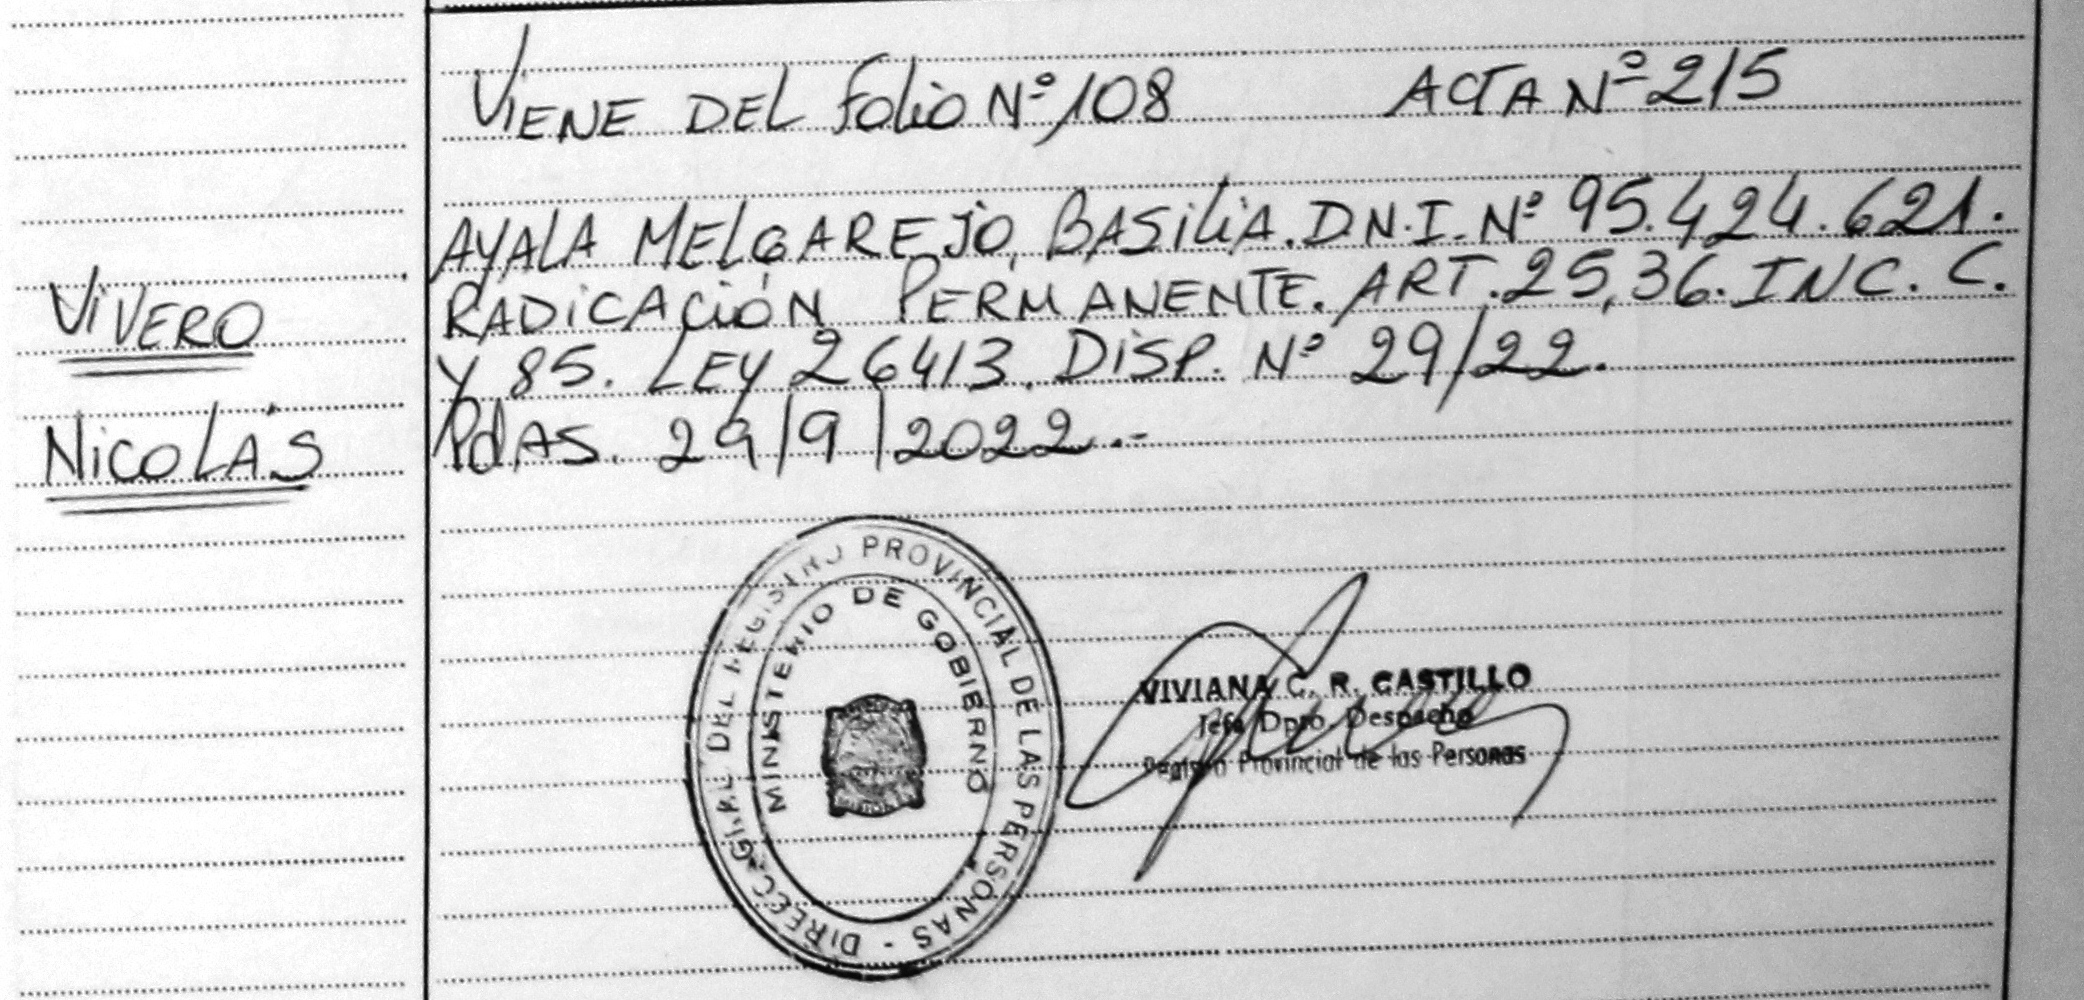 VIENE DEL Folio Nº 108 ACTA Nº 215
AYALA MELGAREJO, BASILIA. D.N.I. Nº 95.424.621.
RADICACIÓN PERMANENTE. ART. 25, 36. INC. C.
Y 85. LEY 26413. DISP. Nº 29/22.
PdAS. 29/9/2022.-
VIVERO
NICOLÁS
DIRECC. GRAL. DEL REGISTRO PROVINCIAL DE LAS PERSONAS -
MINISTERIO DE GOBIERNO
VIVIANA C. R. CASTILLO
Jefa Dpto. Despacho
Registro Provincial de las Personas